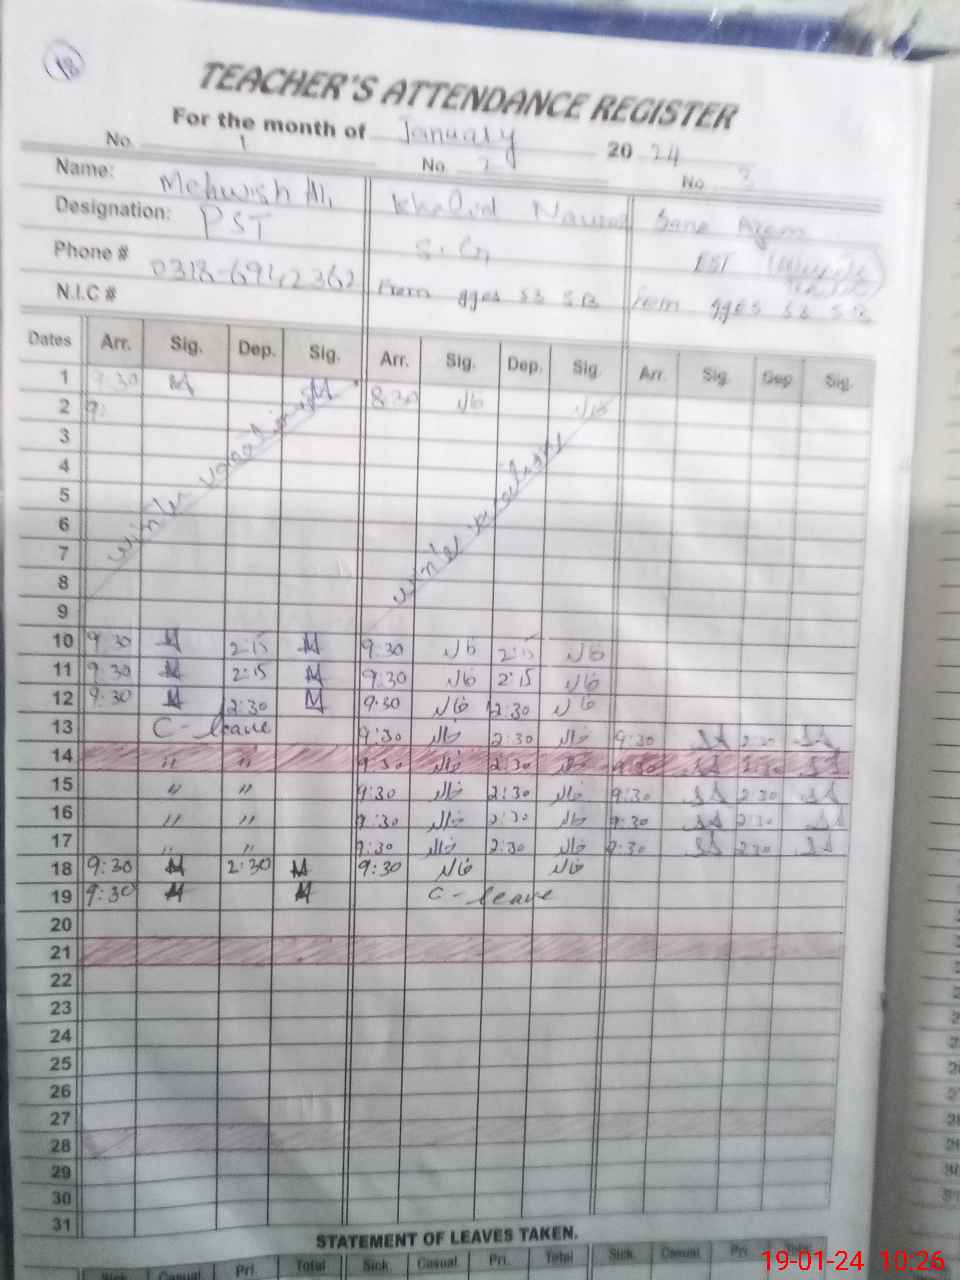 18
TEACHER'S ATTENDANCE REGISTER
For the month of January 2024
No. 1 No. 2 No. 3
Name: Mehwish Ali Khalid Nawaz Sana Azam
Designation: PST S.Cr EST
Phone # 0318-6942362 From gges 53 SB From gges 53 SB
N.I.C #
Dates Arr. Sig. Dep. Sig. Arr. Sig. Dep. Sig. Arr. Sig. Dep Sig.
1 9:30 M M 8:30 خالد خالد
2 9:
3
4
5
6
7
8
9
winter vacations winter vacations
10 9:30 M 2:15 M 9:30 خالد 2:15 خالد
11 9:30 M 2:15 M 9:30 خالد 2:15 خالد
12 9:30 M 2:30 M 9:30 خالد 2:30 خالد
13 C-leave 9:30 خالد 2:30 خالد 9:30 SA 2:30 SA
14 〃 〃 9:30 خالد 2:30 خالد 9:30 SA 2:30 SA
15 〃 〃 9:30 خالد 2:30 خالد 9:30 SA 2:30 SA
16 〃 〃 9:30 خالد 2:30 خالد 9:30 SA 2:30 SA
17 〃 〃 9:30 خالد 2:30 خالد 9:30 SA 2:30 SA
18 9:30 M 2:30 M 9:30 خالد خالد
19 9:30 M M C-leave
20
21
22
23
24
25
26
27
28
29
30
31
STATEMENT OF LEAVES TAKEN.
Sick Casual Pri. Total Sick Casual Pri. Total Sick Casual Pri. Total
19-01-24 10:26